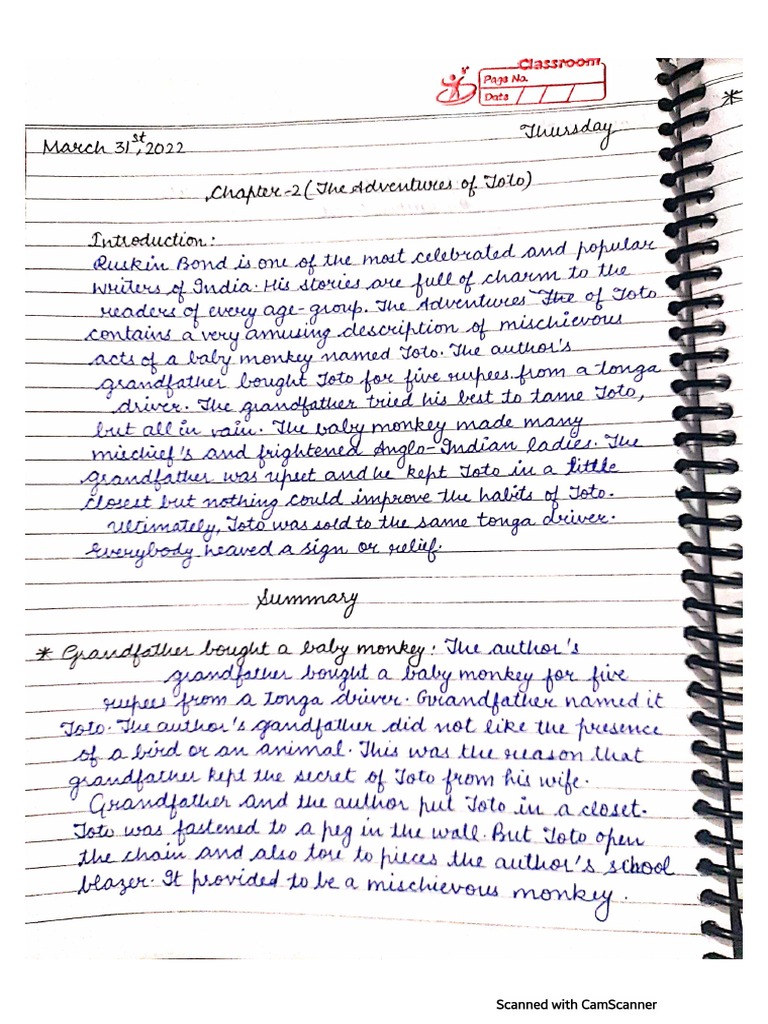 Classroom
Page No.
Date / / /
*
March 31st, 2022 Thursday
Chapter-2 (The Adventures of Toto)
Introduction:
Ruskin Bond is one of the most celebrated and popular
writers of India. His stories are full of charm to the
readers of every age-group. The Adventures The of Toto
contains a very amusing description of mischievous
acts of a baby monkey named Toto. The author's
grandfather bought Toto for five rupees from a tonga
driver. The grandfather tried his best to tame Toto,
but all in vain. The baby monkey made many
mischief's and frightened Anglo-Indian ladies. The
grandfather was upset and he kept Toto in a little
closest but nothing could improve the habits of Toto.
Ultimately, Toto was sold to the same tonga driver.
Everybody heaved a sign or relief.
Summary
* Grandfather bought a baby monkey: The author's
grandfather bought a baby monkey for five
rupees from a tonga driver. Grandfather named it
Toto. The author's gandfather did not like the presence
of a bird or an animal. This was the reason that
grandfather kept the secret of Toto from his wife.
Grandfather and the author put Toto in a closet.
Toto was fastened to a peg in the wall. But Toto open
the chain and also tore to pieces the author's school
blazer. It provided to be a mischievous monkey.
Scanned with CamScanner